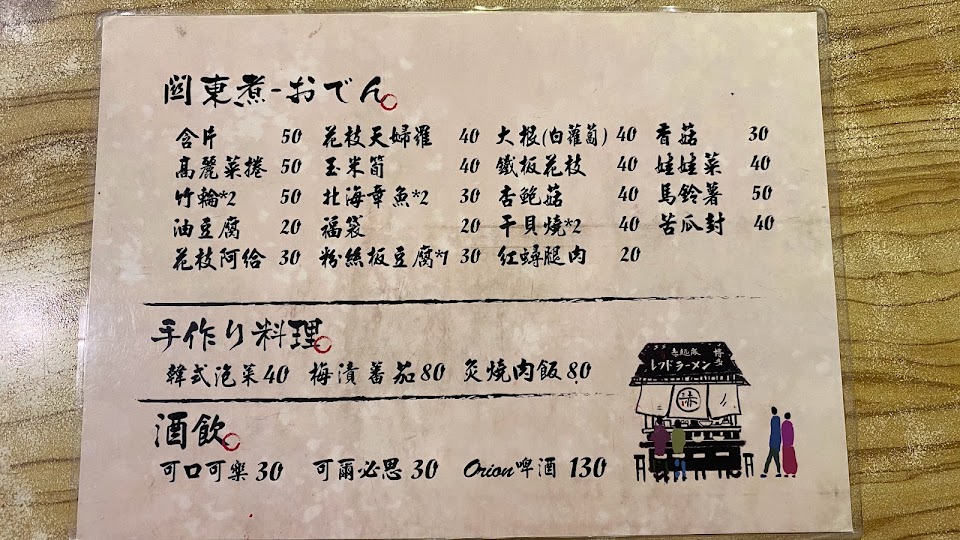 関東煮-おでん
含片 50 花枝天婦羅 40 大根(白蘿蔔) 40 香菇 30
高麗菜捲 50 玉米筍 40 鐵板花枝 40 娃娃菜 40
竹輪*2 50 北海章魚*2 30 杏鮑菇 40 馬鈴薯 50
油豆腐 20 福袋 20 干貝燒*2 40 苦瓜封 40
花枝阿給 30 粉絲板豆腐*1 30 紅蟳腿肉 20
手作り料理
韓式泡菜40 梅漬番茄80 炙燒肉飯80
酒飲
可口可樂30 可爾必思30 Orion啤酒 130
博多
レッドラーメン
赤